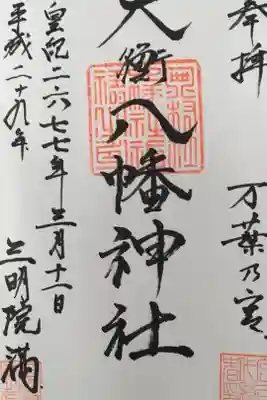 奉拝
万葉乃里
大衡八幡神社
皇紀二六七七年三月十一日
平成二十九年
三明院満